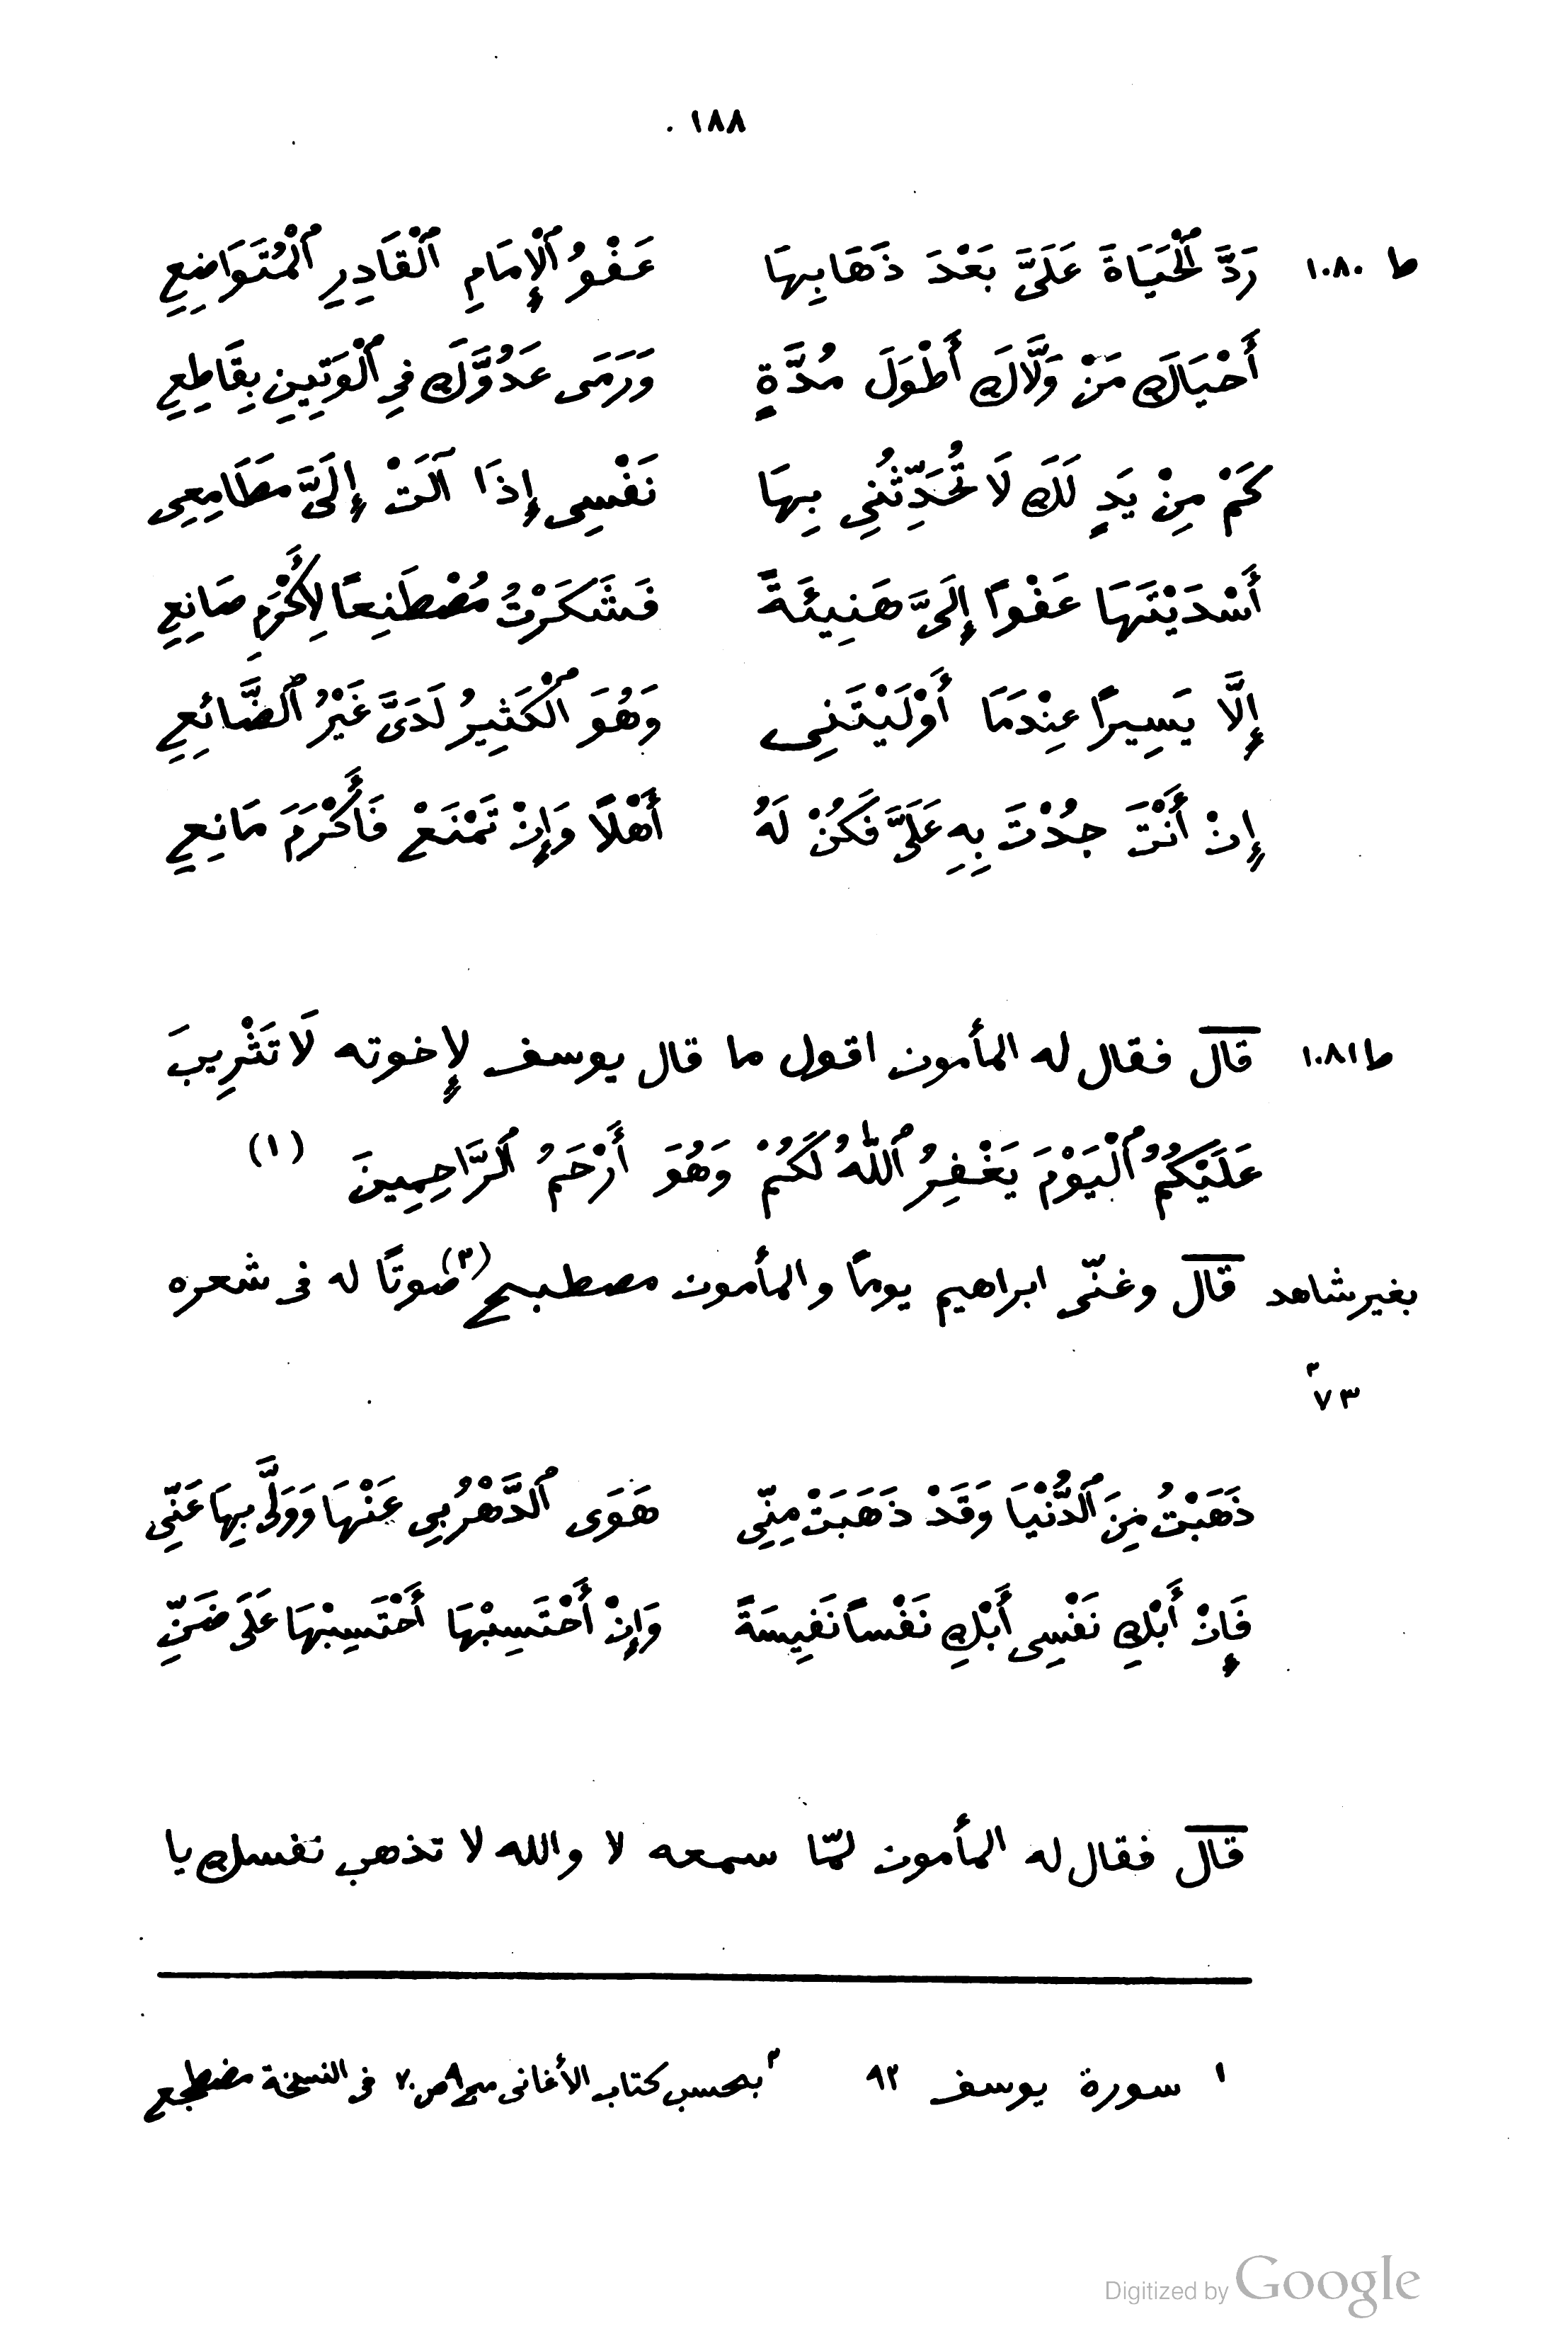 ١٨٨
ط ١٠٨٠ رَدَّ ٱلْحَيَاةَ عَلَىَّ بَعْدَ ذَهَابِهَا عَفْوُ ٱلْإِمَامِ ٱلْقَادِرِ ٱلْمُتَوَاضِعِ
أَحْيَاكَ مَنْ وَلَّاكَ أَطْوَلَ مُدَّةٍ وَرَمَى عَدُوَّكَ فِي ٱلْوَتِينِ بِقَاطِعِ
كَمْ مِنْ يَدٍ لَكَ لَا تُحَدِّثُنِي بِهَا نَفْسِى إِذَا آلَتْ إِلَىَّ مَطَامِعِى
أَسْدَيْتَهَا عَفْوًا إِلَىَّ هَنِيئَةً فَشَكَرْتُ مُصْطَنِعًا لِأَكْرَمِ صَانِعِ
إِلَّا يَسِيرًا عِنْدَمَا أَوْلَيْتَنِى وَهُوَ ٱلْكَثِيرُ لَدَىَّ غَيْرُ ٱلضَّائِعِ
إِنْ أَنْتَ جُدْتَ بِهِ عَلَىَّ فَكُنْ لَهُ أَهْلًا وَإِنْ تَمْنَعْ فَأَكْرَمَ مَانِعِ
ط ١٠٨١ قال فقال له المأمون اقول ما قال يوسف لإخوته لَا تَثْرِيبَ
عَلَيْكُمُ ٱلْيَوْمَ يَغْفِرُ ٱللّٰهُ لَكُمْ وَهُوَ أَرْحَمُ ٱلرَّاحِمِينَ (١)
بغير شاهد قال وغنّى ابراهيم يومًا والمأمون مصطبح (٢) صوتًا له فى شعره
٧٣ ٢
ذَهَبْتُ مِنَ ٱلدُّنْيَا وَقَدْ ذَهَبَتْ مِنِّى هَوَى ٱلدَّهْرُ بِي عَنْهَا وَوَلَّى بِهَا عَنِّى
فَإِنْ أَبْكِ نَفْسِى أَبْكِ نَفْسًا نَفِيسَةً وَإِنْ أَحْتَسِبْهَا أَحْتَسِبْهَا عَلَى ضَنِّ
قال فقال له المأمون لمّا سمعه لا والله لا تذهب نفسك يا
١ سورة يوسف ٩٢ ٢ بحسب كتاب الأغانى ج ٩ ص ٧٠ فى النسخة مضطجع
Digitized by Google